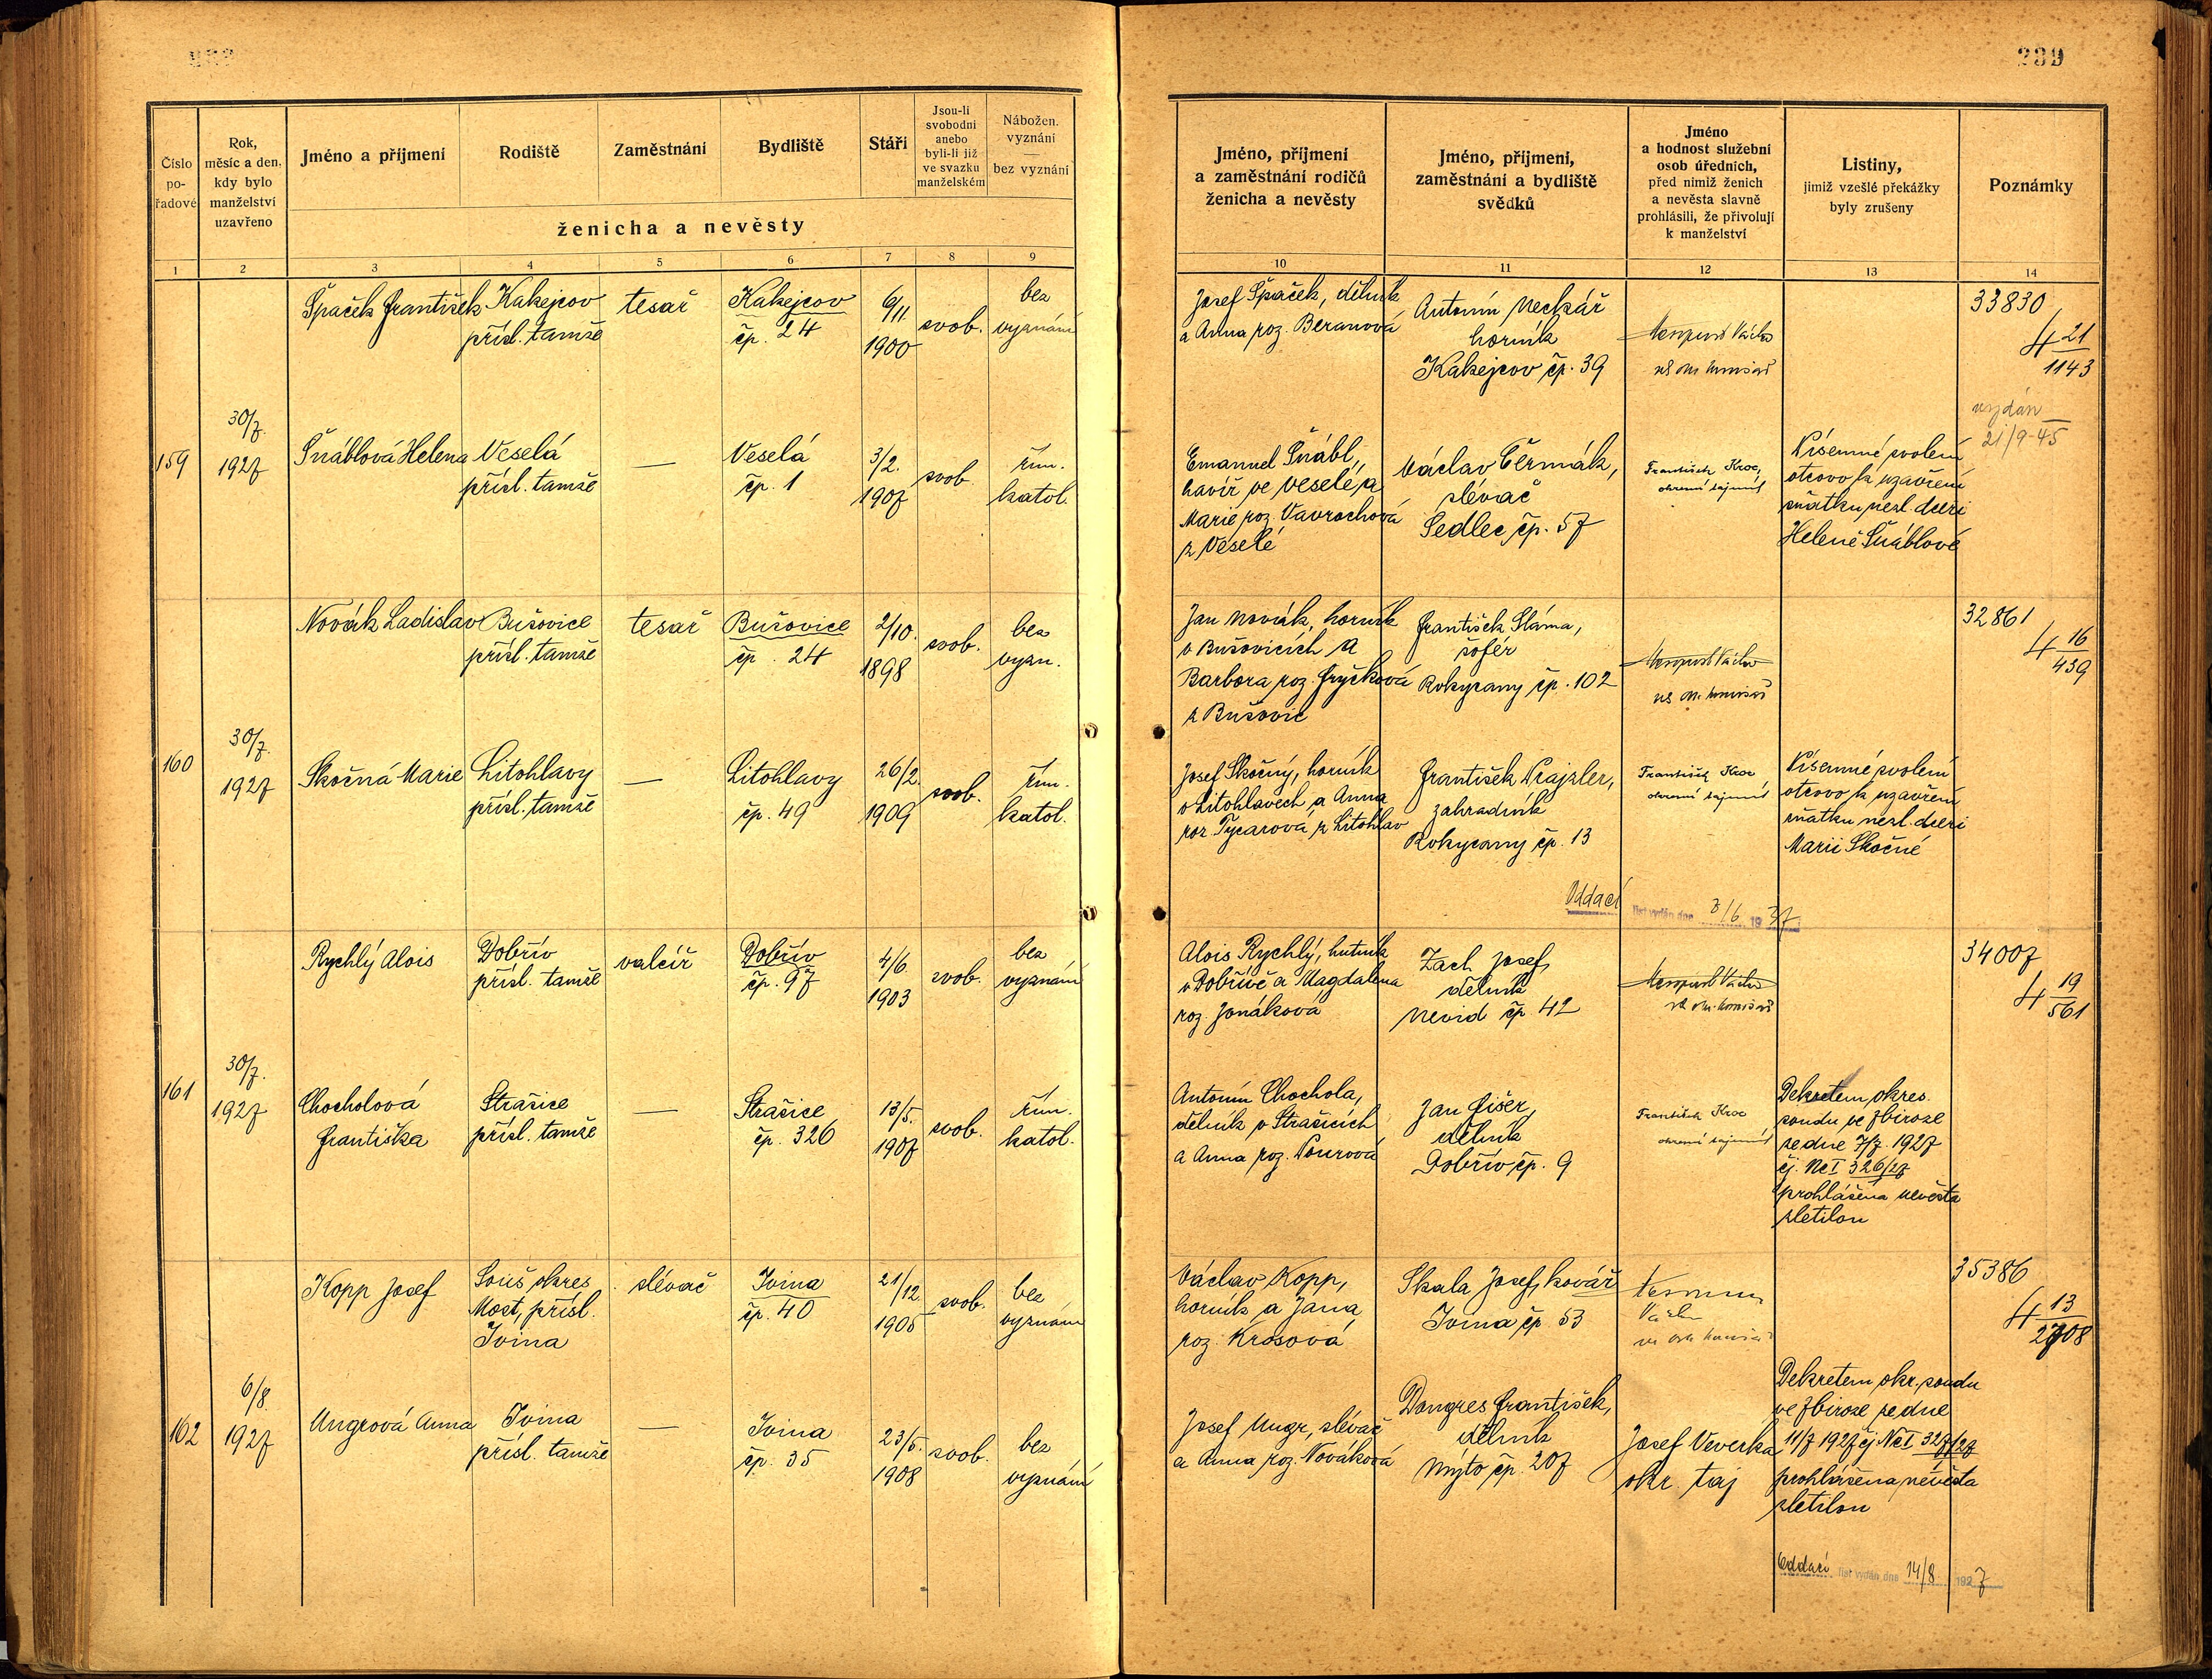 239
Číslo
po-
řadové
Rok,
měsíc a den,
kdy bylo
manželství
uzavřeno
Jméno a příjmení
Rodiště
Zaměstnání
Bydliště
Stáří
Jsou-li
svobodni
anebo
byli-li již
ve svazku
manželském
Nábožen.
vyznání
—
bez vyznání
ženicha a nevěsty
1 2 3 4 5 6 7 8 9
Jméno, příjmení
a zaměstnání rodičů
ženicha a nevěsty
Jméno, příjmení,
zaměstnání a bydliště
svědků
Jméno
a hodnost služební
osob úředních,
před nimiž ženich
a nevěsta slavně
prohlásili, že přivolují
k manželství
Listiny,
jimiž vzešlé překážky
byly zrušeny
Poznámky
10 11 12 13 14
159
30/7.
1927
Špaček František
Kakejcov
přísl. tamže
tesař
Kakejcov
čp. 24
6/11.
1900
svob.
bez
vyznání
Josef Špaček, dělník
a Anna roz. Beranová
Antonín Neckář
horník
Kakejcov čp. 39
33830
4 21
1143
vydán
21/9-45
Šnáblová Helena
Veselá
přísl. tamže
—
Veselá
čp. 1
3/2.
1907
svob.
řím.
katol.
Emanuel Šnábl,
havíř ve Veselé, a
Marie roz. Vavrochová
z Veselé
Václav Čermák,
slévač
Sedlec, čp. 57
František Kroc,
okresní tajemník
Písemné svolení
otcovo k uzavření
sňatku nezl. dceři
Heleně Šnáblové
160
30/7.
1927
Novák Ladislav
Bušovice
přísl. tamže
tesař
Bušovice
čp. 24
2/10.
1898
svob.
bez
vyzn.
Jan Novák, horník
v Bušovicích a
Barbora roz. Fryčková
z Bušovic
František Sláma,
šofér
Rokycany čp. 102
32861
4 16
439
Skočná Marie
Litohlavy
přísl. tamže
—
Litohlavy
čp. 49
26/2.
1909
svob.
řím.
katol.
Josef Skočný, horník
v Litohlavech a Anna
roz. Tycarová z Litohlav
František Prajzler,
zahradník
Rokycany čp. 13
František Kroc
okresní tajemník
Písemné svolení
otcovo k uzavření
sňatku nezl. dceři
Marii Skočné
Oddací list vydán dne 3/6 1937
161
30/7.
1927
Rychlý Alois
Dobřív
přísl. tamže
valcíř
Dobřív
čp. 97
4/6.
1903
svob.
bez
vyznání
Alois Rychlý, hutník
v Dobřívě a Magdalena
roz. Jonáková
Zach Josef,
dělník
Nevid čp. 42
34007
4 19
561
Chocholová
Františka
Strašice
přísl. tamže
—
Strašice
čp. 326
13/5.
1907
svob.
řím.
katol.
Antonín Chochola,
dělník v Strašicích
a Anna roz. Pourová
Jan Fišer,
dělník
Dobřív, čp. 9
František Kroc
okresní tajemník
Dekretem okres.
soudu ve Zbiroze
ze dne 7/7. 1927
čj. Nc I 326/27
prohlášena nevěsta
zletilou
162
6/8.
1927
Kopp Josef
Souš, okres
Most, přísl.
Jvina
slévač
Jvina
čp. 40
21/12.
1905
svob.
bez
vyznání
Václav Kopp,
horník a Jana
roz. Krosová
Skala Josef, kovář
Jvina čp. 53
35386
4 13
2708
Ungrová Anna
Jvina
přísl. tamže
—
Jvina
čp. 35
23/5.
1908
svob.
bez
vyznání
Josef Ungr, slévač
a Anna roz. Nováková
Dongres František,
dělník
Mýto čp. 207
Josef Veverka
okr. taj
Dekretem okr. soudu
ve Zbiroze ze dne
11/7 1927 čj Nc I 327/27
prohlášena nevěsta
zletilou
Oddací list vydán dne 14/8 1927